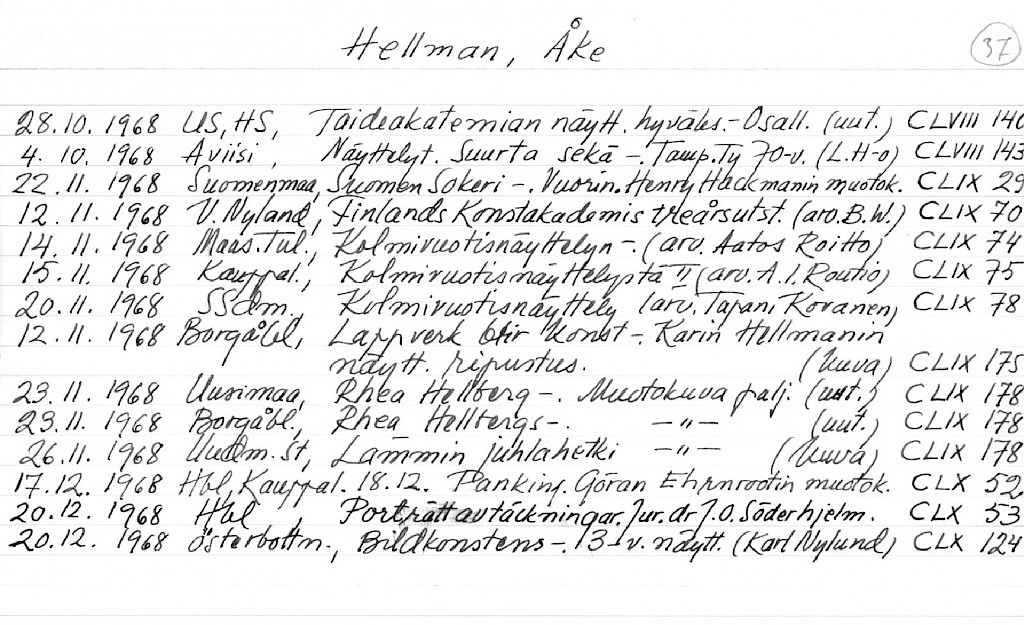 Hellman, Åke
37
28.10. 1968 US, HS, Taideakatemian näytt. hyväles. - Osall. (uut.) CLVIII 140
4. 10. 1968 Aviisi, Näyttelyt. Suurta sekä -. Tamp.Ty 70-v. (L.H-o) CLVIII 143
22. 11. 1968 Suomenmaa, Suomen Sokeri -. Vuorin. Henry Hackmanin muotok. CLIX 29
12. 11. 1968 V. Nyland, Finlands Konstakademis treårsutst. (arv. B.W.) CLIX 70
14. 11. 1968 Maas. Tul., Kolmivuotisnäyttelyn -. (arv. Aatos Roitto) CLIX 74
15. 11. 1968 Kauppal., Kolmivuotisnäyttelystä II (arv. A.I. Routio) CLIX 75
20. 11. 1968 SSdm., Kolmivuotisnäyttely (arv. Tapani Kovanen) CLIX 78
12. 11. 1968 Borgåbl, Lappverk blir konst -. Karin Hellmanin
näytt. ripustus. (kuva) CLIX 175
23. 11. 1968 Uusimaa, Rhea Hellberg -. Muotokuva palj. (uut.) CLIX 178
23. 11. 1968 Borgåbl., Rhea Hellbergs -. -"- (uut.) CLIX 178
26. 11. 1968 Uudm. st, Lämmin juhlahetki -"- (kuva) CLIX 178
17. 12. 1968 Hbl, Kauppal. 18.12. Pankinj. Göran Ehrnrootin muotok. CLX 52.
20. 12. 1968 Hbl, Porträttavtäckningar. Jur. dr J.O. Söderhjelm. CLX 53
20. 12. 1968 Österbottn., Bildkonstens -. 13-v. näytt. (Karl Nylund) CLX 124